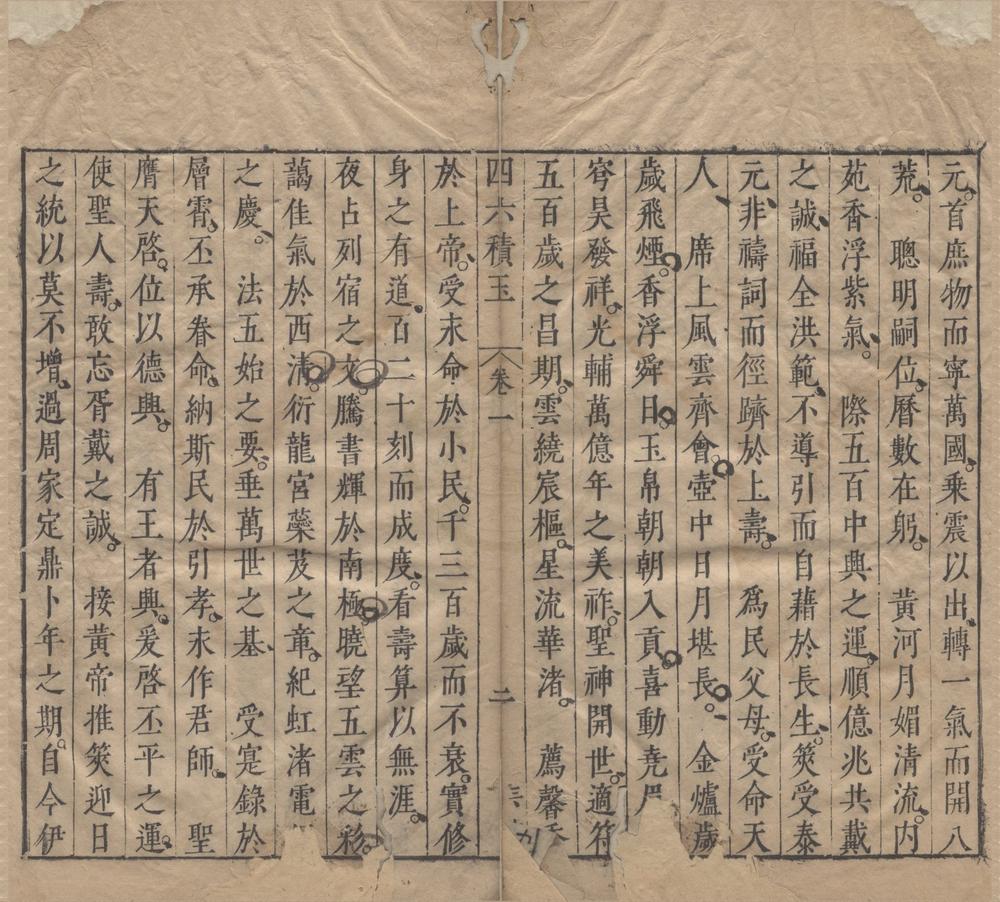 元。首庶物而寧萬國、乘震以出、轉一氣而開八
荒、　聰明嗣位、曆數在躬。　黃河月媚清流、內
苑香浮紫氣、。　際五百中興之運、順億兆共戴
之誠、福全洪範、不導引而自藉於長生、。筴受泰
元、非禱詞而徑躋於上壽、。　爲民父母、受命天
人、　席上風雲齊會、壺中日月堪長。　金爐歲
歲飛煙、香浮舜日、玉帛朝朝入貢、喜動尭
穹昊發祥、光輔萬億年之美祚、聖神開世、適符
五百歲之昌期、雲繞宸樞、星流華渚。　薦馨
四六積玉　卷一　二
於上帝、受末命於小民、千三百歲而不衰、實修
身之有道、百二十刻而成度、看壽算以無涯、
夜占列宿之文、騰書輝於南極、曉望五雲之彩、
藹佳氣於西清、衍龍宮蘂芨之章、紀虹渚電
之慶。　法五始之要、垂萬世之基、　受寔錄於
層霄、丕承眷命、納斯民於引孝、末作君師、　聖
膺天啓、位以德興、　有王者興、爰啓丕平之運、
使聖人壽、敢忘胥戴之誠、　接黃帝推筴迎日
之統以莫不增、過周家定鼎卜年之期。自今伊